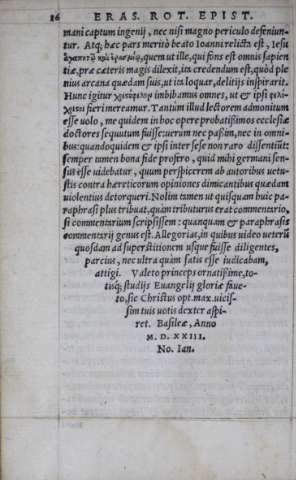 16 ERAS. ROT. EPIST.
mani captum ingenij, nec nisi magno periculo defeniun-
tur. Atq; hæc pars merito beato Ioanni relicta est, Iesu
ἀγαπητῷ καὶ ἐρασμίῳ, quem ut ille, qui fons est omnis sapien
tiæ, præ cæteris magis dilexit, ita credendum est, quòd ple
nius arcana quædam suis, ut ita loquar, delitijs inspirarit.
Hunc igitur χριςόφιλον imbibamus omnes, ut & ipsi φιλό-
χριςοι fieri mereamur. Tantum illud lectorem admonitum
esse uolo, me quidem in hoc opere probatissimos ecclesiæ
doctores sequutum fuisse: uerum nec passim, nec in omni-
bus: quandoquidem & ipsi inter sese non raro dissentiũt:
semper tamen bona fide profero, quid mihi germani sen-
sus esse uidebatur, quum perspicerem ab autoribus uetu-
stis contra hæreticorum opiniones dimicantibus quædam
uiolentius detorqueri. Nolim tamen ut quisquam huic pa-
raphrasi plus tribuat, quàm tributurus erat commentario,
si commentarium scripsissem: quanquam & paraphrasis
commentarij genus est. Allegorias, in quibus uideo ueterũ
quosdam ad superstitionem usque fuisse diligentes,
parcius, nec ultra quàm satis esse iudicabam,
attigi. Valeto princeps ornatissime, to-
tisq; studijs Euangelij gloriæ faue-
to, sic Christus opt. max. uicis-
sim tuis uotis dexter aspi-
ret. Basileæ, Anno
M. D. XXIII.
No. Ian.